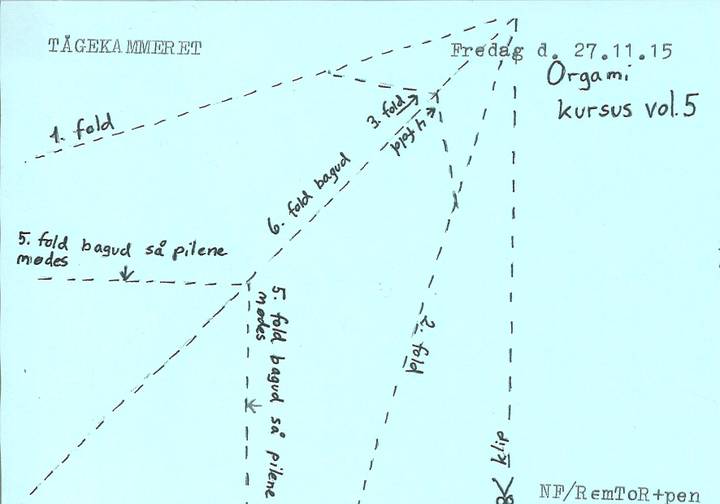 TÅGEKAMMERET
Fredag d. 27.11.15
Orgami
kursus vol.5
1. fold
3. fold
4. fold
6. fold bagud
5. fold bagud så pilene
mødes
5. fold bagud så pilene
mødes
2. fold
klip
NF/RemToR+pen